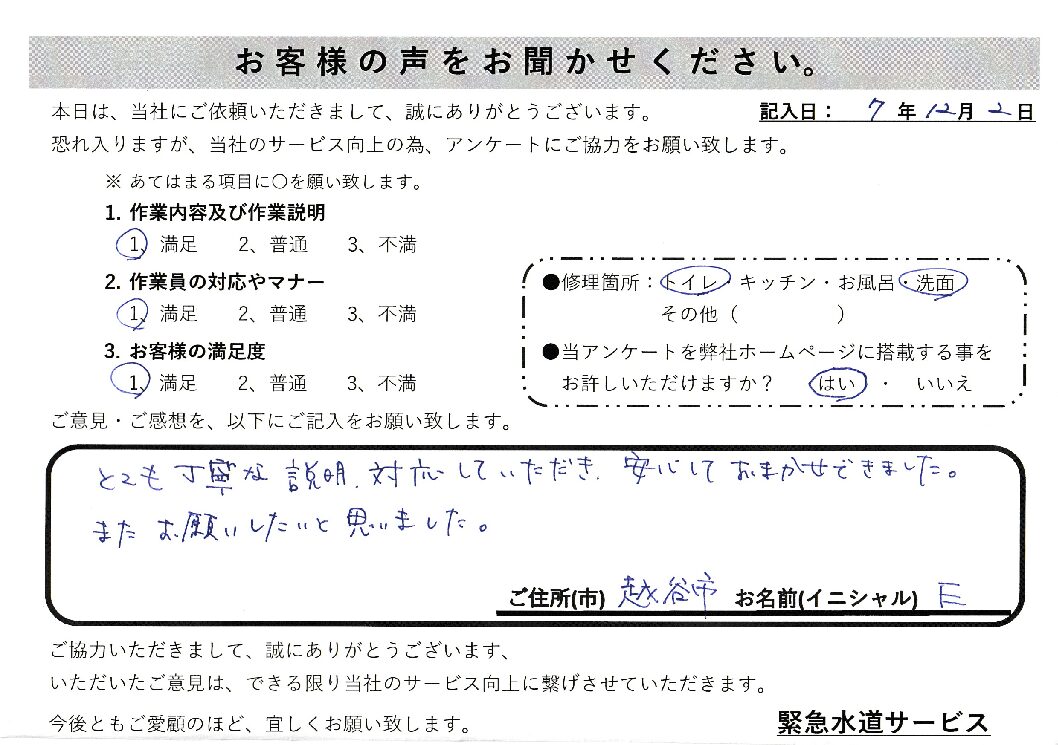 お客様の声をお聞かせください。
本日は、当社にご依頼いただきまして、誠にありがとうございます。 記入日： 7 年 12 月 2 日
恐れ入りますが、当社のサービス向上の為、アンケートにご協力をお願い致します。
※ あてはまる項目に〇を願い致します。
1. 作業内容及び作業説明
1、満足 2、普通 3、不満
2. 作業員の対応やマナー
1、満足 2、普通 3、不満
3. お客様の満足度
1、満足 2、普通 3、不満
●修理箇所：トイレ・キッチン・お風呂・洗面
その他（ ）
●当アンケートを弊社ホームページに搭載する事を
お許しいただけますか？ はい ・ いいえ
ご意見・ご感想を、以下にご記入をお願い致します。
とても丁寧な説明、対応していただき、安心しておまかせできました。
またお願いしたいと思いました。
ご住所(市) 越谷市 お名前(イニシャル) E
ご協力いただきまして、誠にありがとうございます、
いただいたご意見は、できる限り当社のサービス向上に繋げさせていただきます。
今後ともご愛顧のほど、宜しくお願い致します。 緊急水道サービス